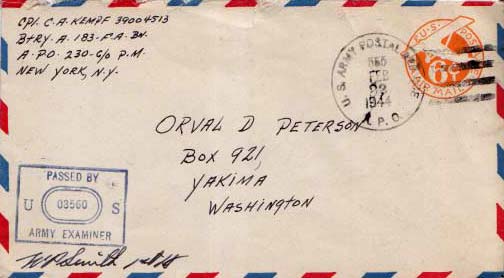 CPL. C.A. KEMPF 39004513
BTRY. A. 183-F.A. BN.
A-PO-230-C/O P.M.
NEW YORK, N.Y.
U.S. ARMY POSTAL SERVICE
FEB
22
1944
A.P.O.
U.S. POSTAGE
6¢
AIR MAIL
ORVAL D PETERSON
BOX 921,
YAKIMA
WASHINGTON
PASSED BY
U 03560 S
ARMY EXAMINER
WP Smith 1st Lt